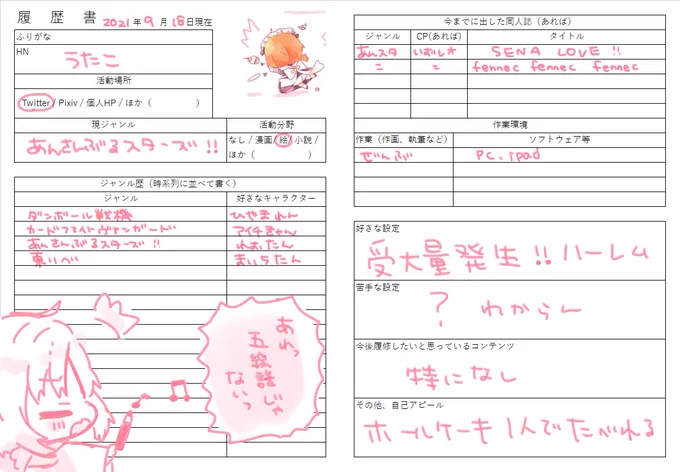 履 歴 書 2021年 9月 18日現在
ふりがな
HN
うたこ
活動場所
Twitter / Pixiv / 個人HP / ほか( )
現ジャンル
活動分野
あんさんぶるスターズ!!
なし / 漫画 / 絵 / 小説 /
ほか( )
ジャンル歴(時系列に並べて書く)
ジャンル
好きなキャラクター
ダンボール戦機
ひやまれん
カードファイトヴァンガード
アイチきゅん
あんさんぶるスターズ!!
れおたん
東リべ
まいちたん
あれっ
五線譜じゃ
ないっ
今までに出した同人誌(あれば)
ジャンル
CP(あれば)
タイトル
あんスタ
いずレオ
SENA LOVE !!
=
=
fennec fennec fennec
作業環境
作業(作画、執筆など)
ソフトウェア等
ぜんぶ
PC、ipad
好きな設定
受大量発生!!ハーレム
苦手な設定
? わからん
今後履修したいと思っているコンテンツ
特になし
その他、自己アピール
ホールケーキ1人でたべれる